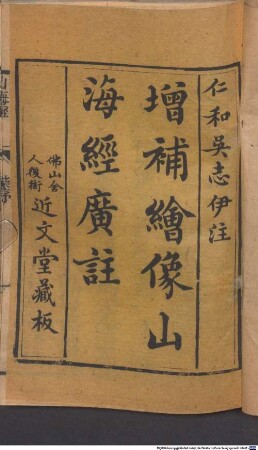 仁和吳志伊注
增補繪像山
海經廣註
佛山舍
人後街
近文堂藏板